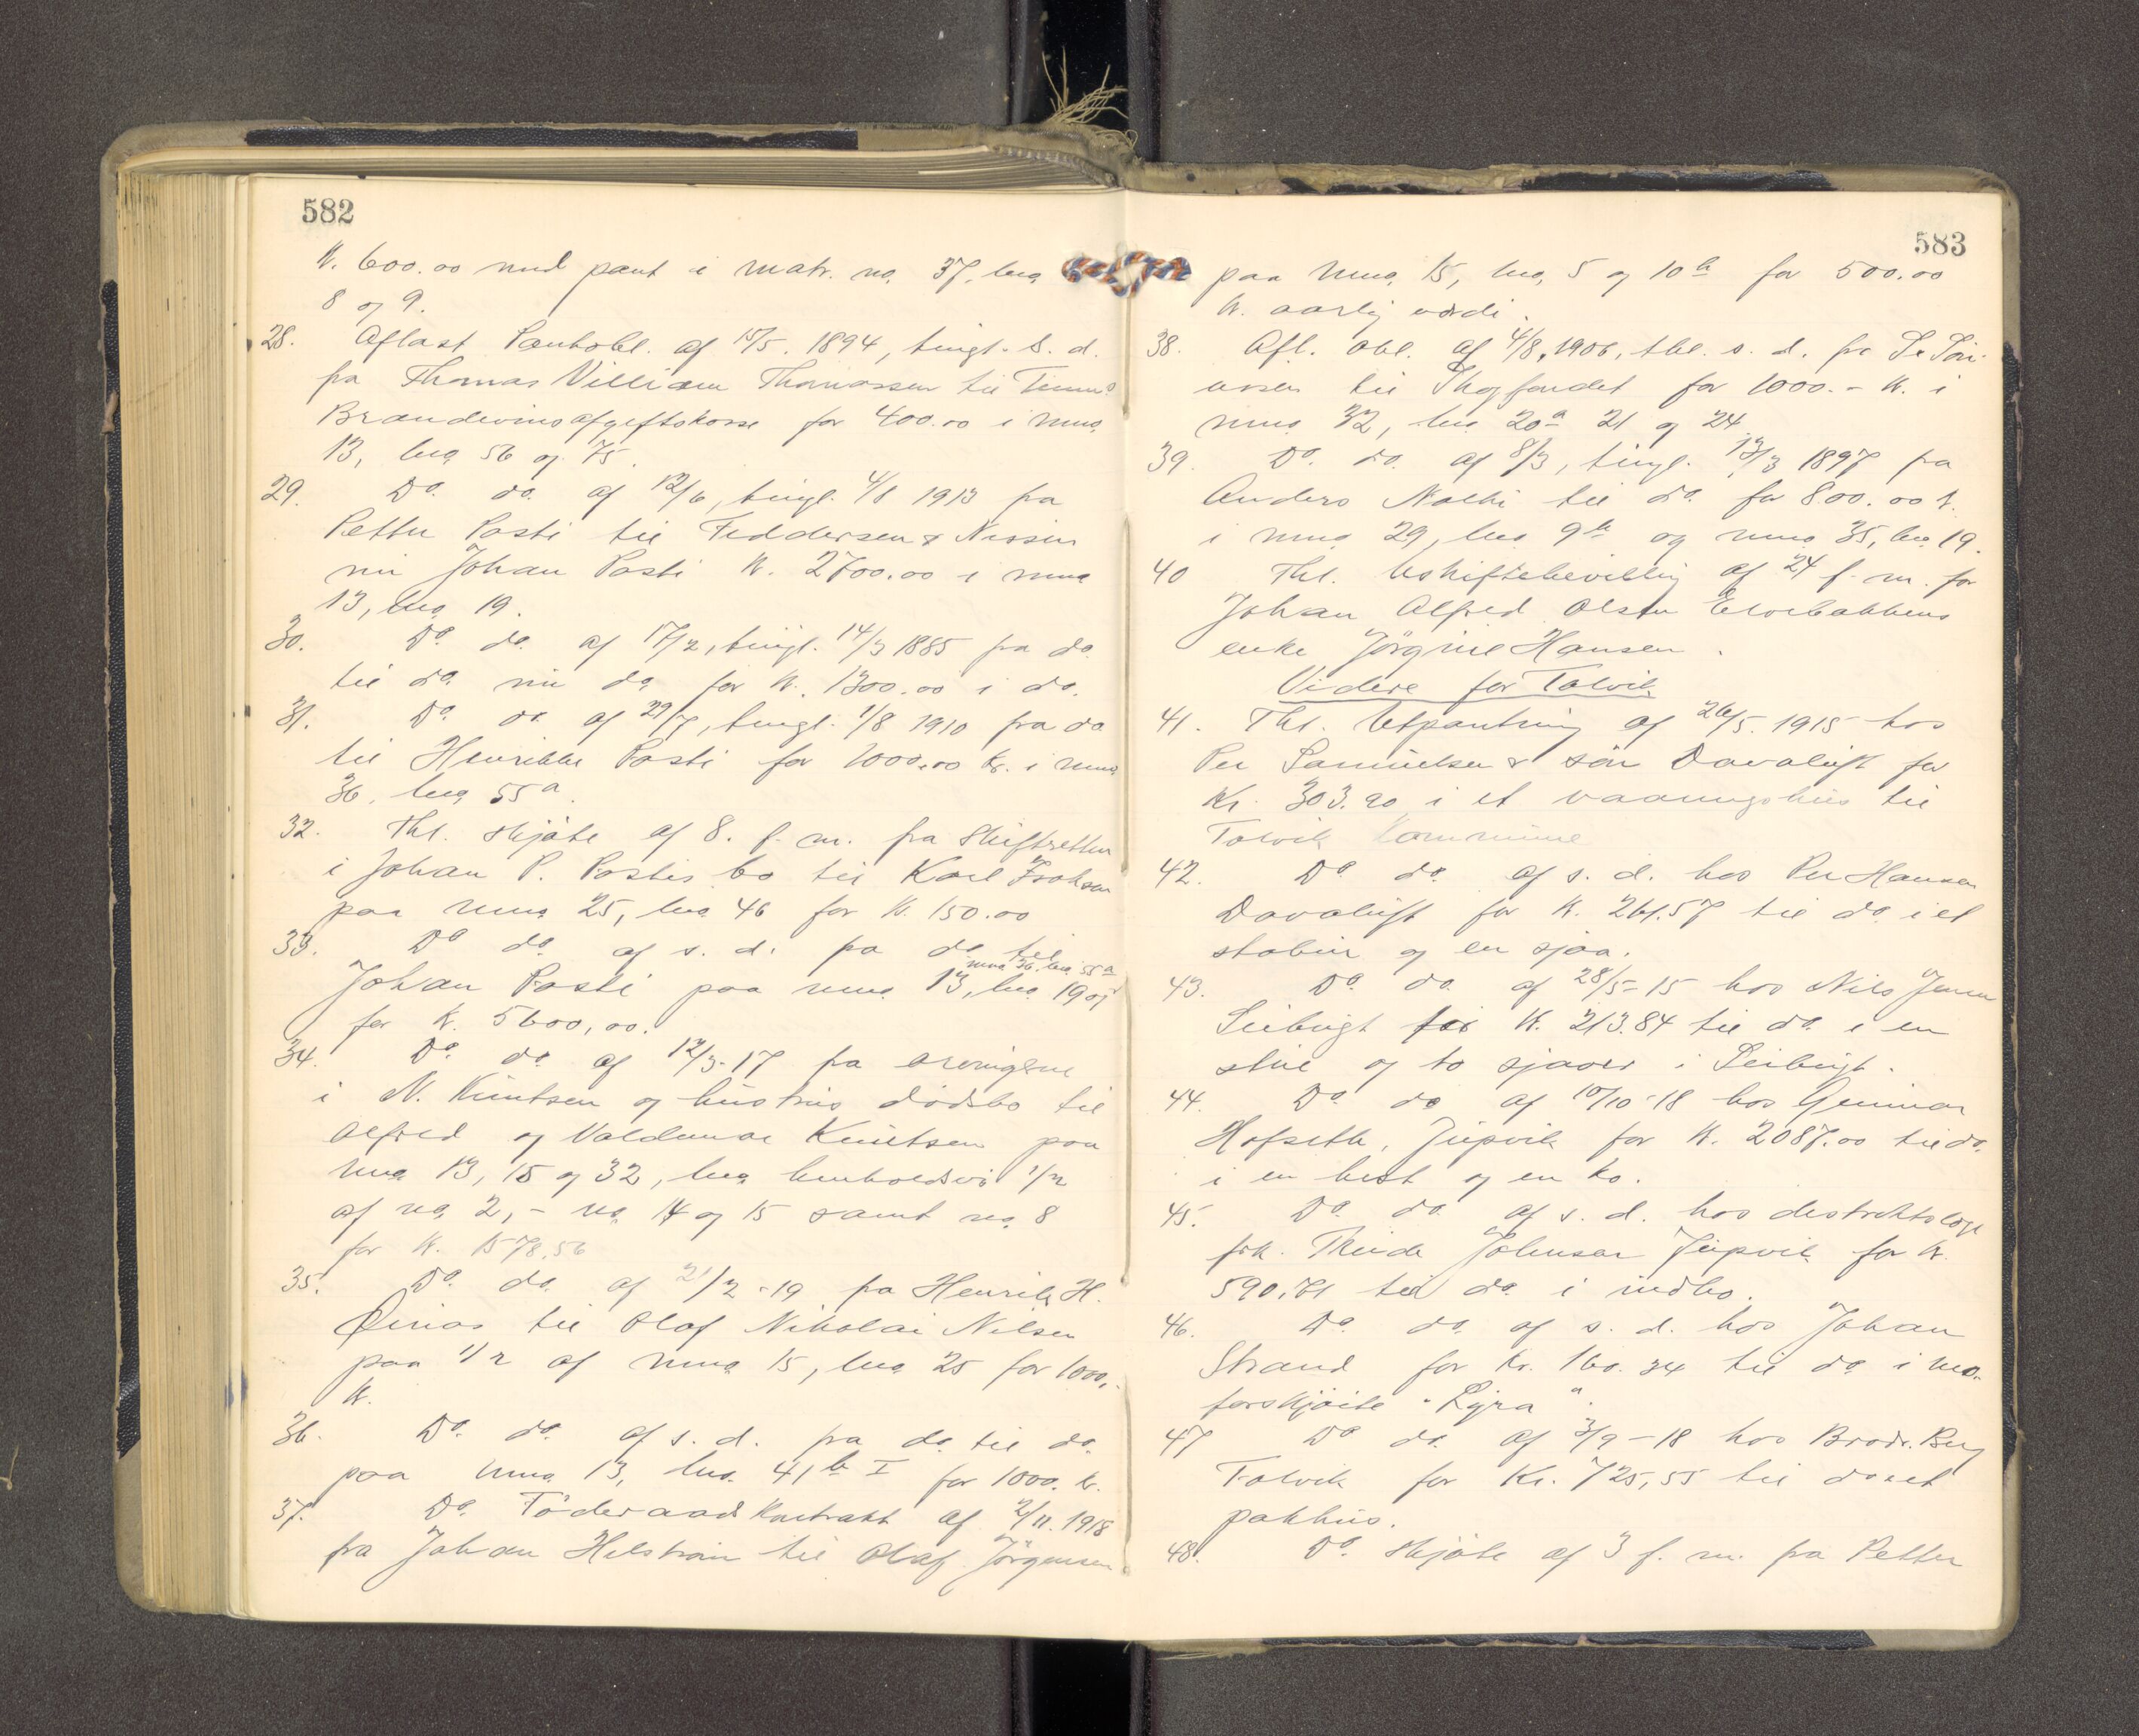 582
Kr. 600.00 med pant i matr. no. 37, lno.
8 og 9.
28. Aflast Pantobl. af 15/5. 1894, tingl. s. d.
fra Thomas Villiam Thomassen til
Brændevinsafgiftskasse for 400.00 i mno.
13, lno. 56 og 75.
29. Do. do. af 12/6, tingl. 4/8 1913 fra
Petter Posti til Feddersen & Nissen
nu Johan Posti kr. 2700.00 i mno.
13, lno. 19.
30. Do. do. af 17/2, tingl. 14/3 1885 fra do.
til do. nu do. for kr. 1300.00 i do.
31. Do. do. af 29/7, tingl. 1/8 1910 fra do.
til Henrikke Posti for 1000.00 kr. i mno.
36, lno. 55a.
32. Thl. skjöte af 8. f. m. fra Skifteretten
i Johan P. Postis bo til Karl Isaksen
paa mno. 25, lno. 46 for kr. 150.00
33. Do. do. af s. d. fra do. til
mno. 36, lno. 55a
Johan Posti paa mno. 13, lno. 19 og
for kr. 5600,00.
34. Do. do. af 12/3-17 fra arvingerne
i N. Knutsen og hustrus dödsbo til
Alfred og Valdemar Knutsen paa
mno. 13, 15 og 32, lno. henholdsvis 1/2
af no. 2, - no. 14 og 15 samt no. 8
for kr. 1578.56
35. Do. do. af 21/2-19 fra Henrik H.
til Olaf Nikolai Nilsen
paa 1/2 af mno. 15, lno. 25 for 1000,-
kr.
36. Do. do. af s. d. fra do. til do.
paa mno. 13, lno. 41 b I for 1000. kr.
37. Do. Föderaadskontrakt af 2/11. 1918
fra Johan Helström til Olaf Jörgensen
583
paa mno. 15, lno. 5 og 10b for 500.00
kr. aarlig værdi.
38. Afl. obl. af 4/8. 1906, tbl. s. d. fra
til Skogfondet for 1000.- kr. i
mno. 32, lno. 20a 21 og 24.
39. Do. do. af 8/3, tingl. 13/3 1897 fra
Anders til do. for 800.00 kr.
i mno. 29, lno. 9b og mno. 35, lno. 19.
40 Thl. Uskiftebevilling af 24 f. m. for
Johan Alfred Olsen Elvebakkens
enke Jörgine Hansen.
Videre for Talvik
41. Thl. Utpantning af 26/5. 1915 hos
Per Samuelsen & sön Davaluft for
Kr. 303.90 i et vaaningshus til
Talvik kommune
42. Do. do. af s. d. hos Per Hansen
Davaluft for kr. 261.57 til do. i et
stabur og en sjaa.
43. Do. do. af 28/5-15 hos Nils Jensen
Leibugt for kr. 213.84 til do. i en
stue og to sjaaer i Leibugt.
44. Do. do. af 10/10-18 hos Gunnar
Hofseth, Jupvik for kr. 2087.00 til do.
i en hest og en ko.
45. Do. do. af s. d. hos distriktslæge
frk. Johnsen Jupvik for kr.
590.71 til do. i indbo.
46. Do. do. af s. d. hos Johan
Strand for kr. 160.34 til do. i mo-
torskjöite "Lyra".
47 Do. do. af 3/9-18 hos Brödr. Berg
Talvik for Kr. 725,55 til do. i et
pakhus.
48. Do. skjöte af 3 f. m. fra Petter